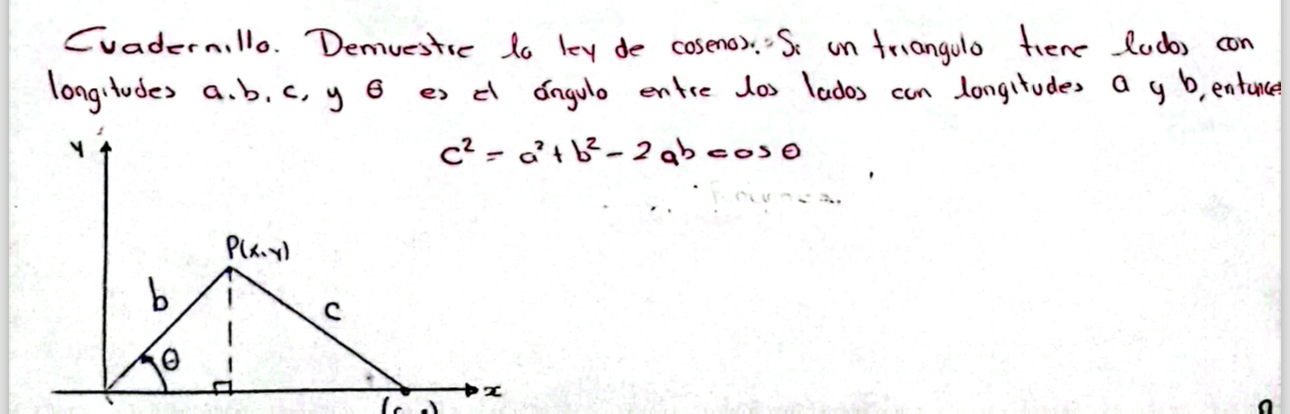 Cuadernillo. Demuestre la ley de cosenos.: Si un triangulo tiene lados con
longitudes a, b, c, y θ es el ángulo entre los lados con longitudes a y b, entonce
c² = a² + b² - 2ab cos θ
y
P(x,y)
b
c
θ
x